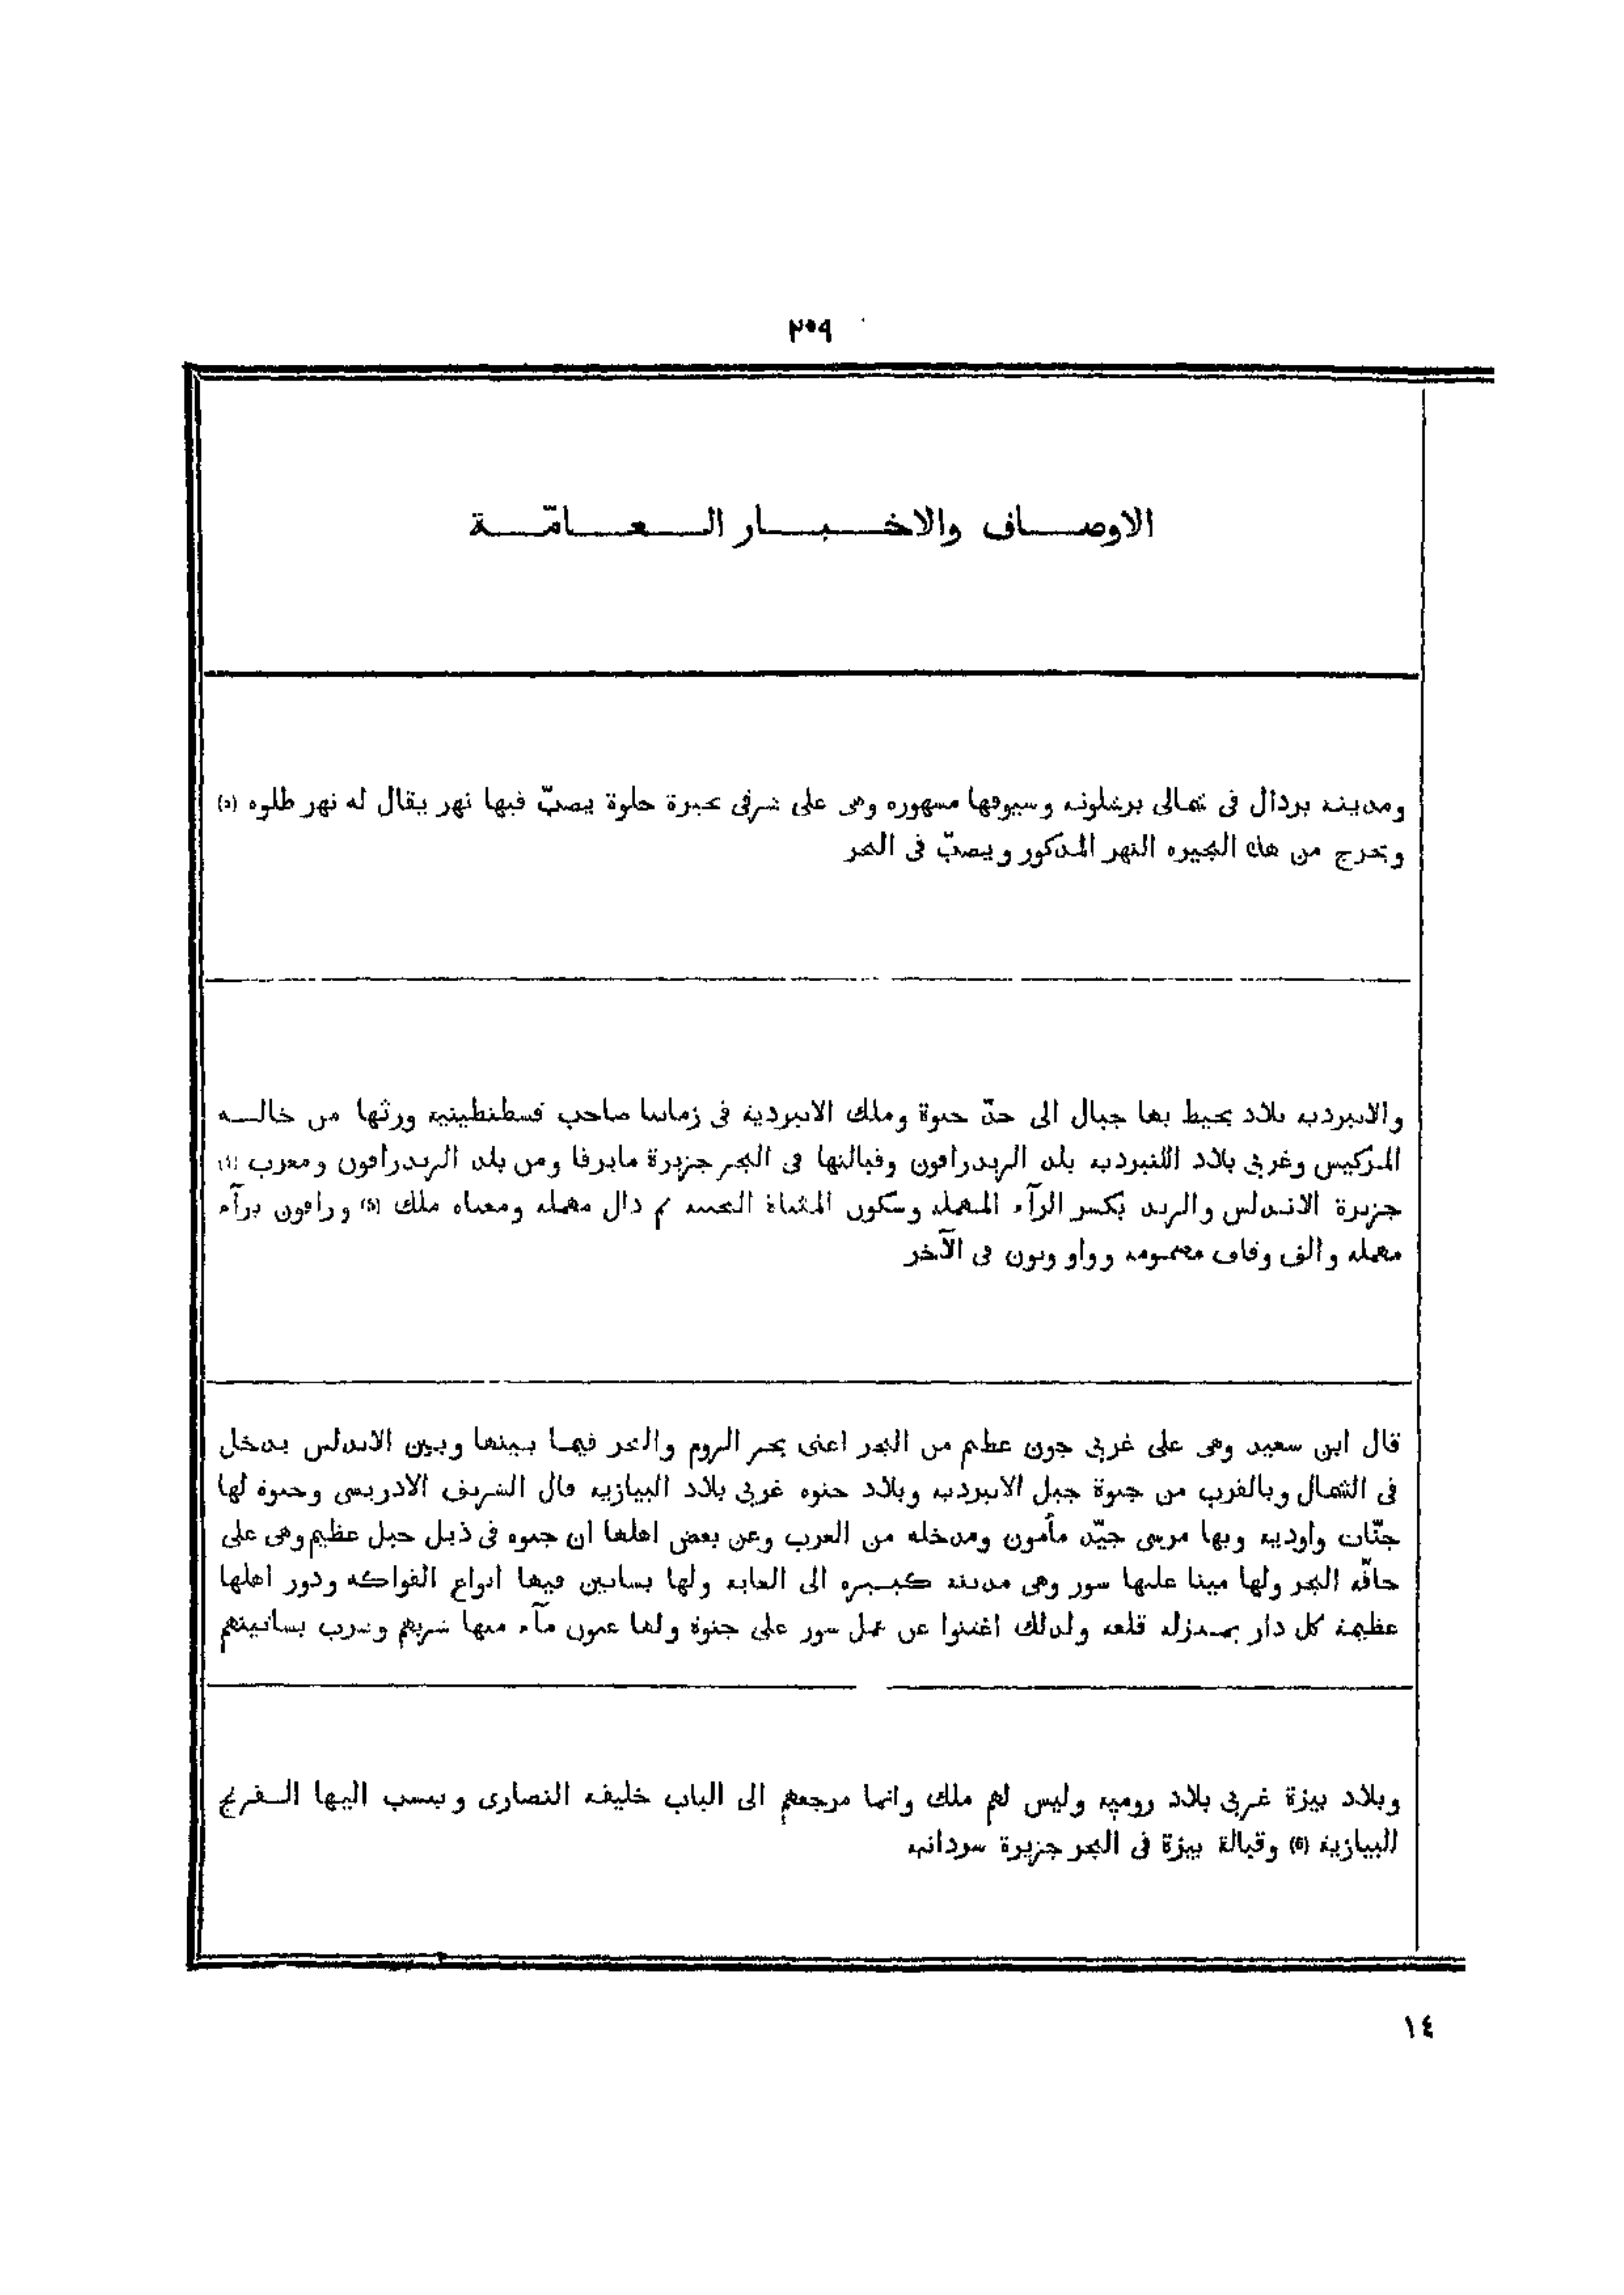 ٢٠٩
الاوصاف والاخبار العامّة
ومدينة بردال فى شمالى برشلونة وسيوفها مشهورة وهى على شرقى بحيرة حلوة يصبّ فيها نهر يقال له نهر طلوه (٥)
ويخرج من هذه البحيرة النهر المذكور ويصبّ فى البحر
والانبردية بلاد يحيط بها جبال الى حدّ جنوة وملك الانبردية فى زماننا صاحب قسطنطينية ورثها من خاله
المركيس وغربى بلاد اللنبردية بلد الريدراقون وقبالتها فى البحر جزيرة مايرقا ومن بلد الريدراقون ومغرب (٤)
جزيرة الاندلس والريد بكسر الرآء المهملة وسكون المثناة التحتية ثم دال مهملة ومعناه ملك (5) وراقون برآء
مهملة والف وقاف مضمومة وواو ونون فى الآخر
قال ابن سعيد وهى على غربى جون عظيم من البحر اعنى بحر الروم والبحر فيما بينها وبين الاندلس يدخل
فى الشمال وبالغرب من جنوة جبل الانبردية وبلاد جنوه غربى بلاد البيازية قال الشريف الادريسى وجنوة لها
جنّات واودية وبها مرسى جيّد مأمون ومدخله من الغرب وعن بعض اهلها ان جنوه فى ذيل جبل عظيم وهى على
حافّة البحر ولها مينا عليها سور وهى مدينة كبيرة الى الغاية ولها بساتين فيها انواع الفواكه ودور اهلها
عظيمة كل دار بمنزلة قلعة ولذلك اغتنوا عن عمل سور على جنوة ولها عيون مآء منها شربهم وشرب بساتينهم
وبلاد بيزة غربى بلاد رومية وليس لهم ملك وانما مرجعهم الى الباب خليفة النصارى وينسب اليها الفرنج
البيازية (6) وقبالة بيزة فى البحر جزيرة سردانية
١٤